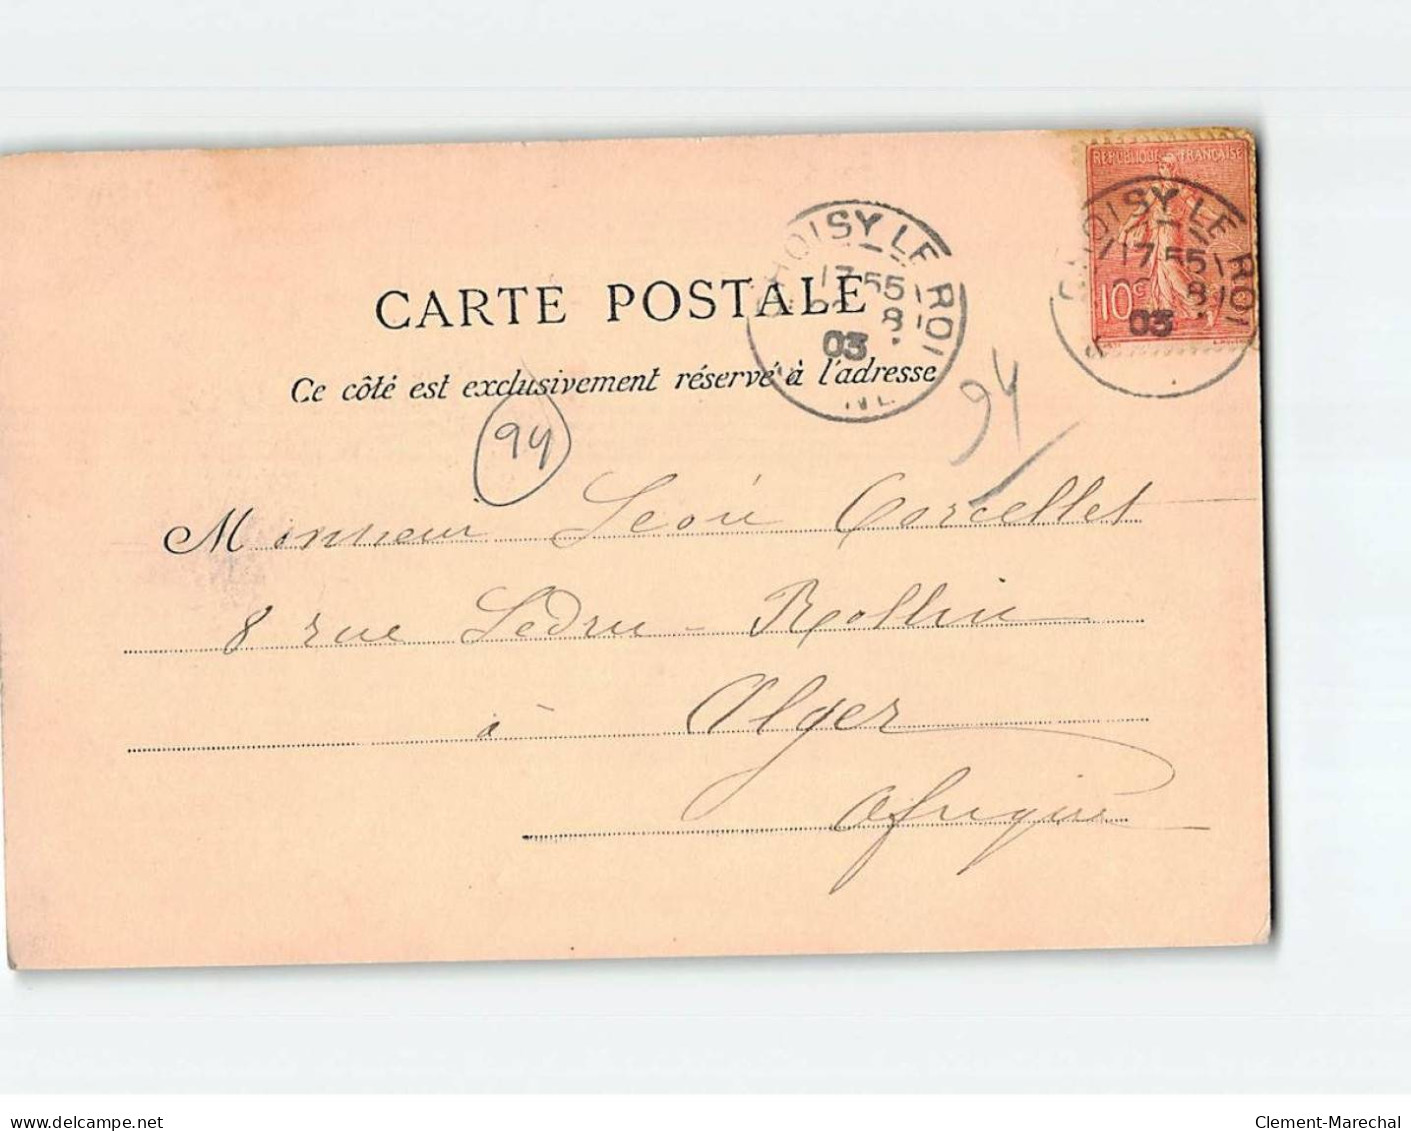 REPUBLIQUE FRANÇAISE
10c
CHOISY LE ROI
17 55
8
03
CHOISY LE ROI
17 55
8
03
CARTE POSTALE
Ce côté est exclusivement réservé à l'adresse
94
94
Monsieur Léon Corcellet
8 rue Ledru-Rollin
à Alger
Afrique
delcampe.net
Clement-Marechal